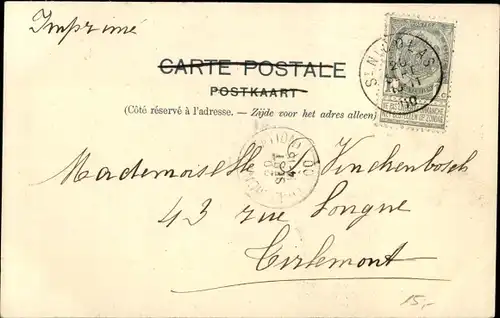 Imprimé
CARTE POSTALE
POSTKAART
(Côté réservé à l'adresse. — Zijde voor het adres alleen)
ST NICOLAS
Mademoiselle Vinchenbosch
43 rue Longue
Tirlemont
20
SEPT
00
15,-